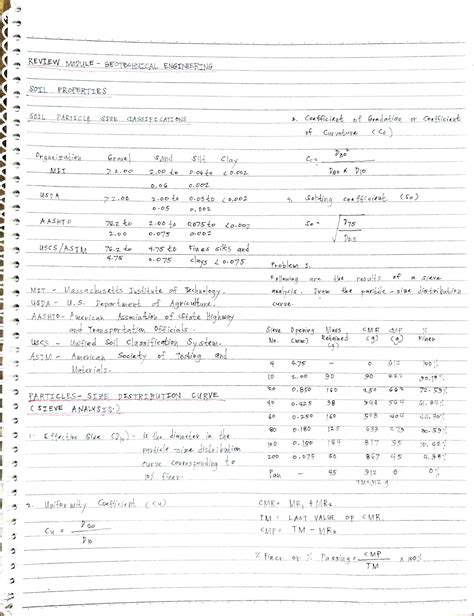 REVIEW MODULE - GEOTECHNICAL ENGINEERING
SOIL PROPERTIES
SOIL PARTICLE SIZE CLASSIFICATIONS
Organization Gravel Sand Silt Clay
MIT >2.00 2.00 to 0.06 to <0.002
0.06 0.002
USDA >2.00 2.00 to 0.05 to <0.002
0.05 0.002
AASHTO 76.2 to 2.00 to 0.075 to <0.002
2.00 0.075 0.002
USCS/ASTM 76.2 to 4.75 to Fines silts and
4.75 0.075 clays <0.075
MIT - Massachusetts Institute of Technology.
USDA - U.S. Department of Agriculture.
AASHTO - American Association of State Highway
and Transportation Officials.
USCS - Unified Soil Classification System.
ASTM - American Society of Testing and
Materials.
PARTICLES - SIZE DISTRIBUTION CURVE
(SIEVE ANALYSIS)
1. Effective Size (D10) - is the diameter in the
particle size distribution
curve corresponding to
10% finer.
2. Uniformity Coefficient (Cu)
Cu = D60
D10
Coefficient of Gradation or Coefficient
of Curvature (Cc)
Cc =
D60 x D10
Sorting coefficient (So)
So = √ D75
D25
Problem 1.
Following are the results of a sieve
analysis. Draw the particle-size distribution
curve.
Sieve Opening Mass CMR %
No. (mm) Retained (g) Finer
(g)
4 4.75 - 0 912 100%
10 2.00 90 90
20 0.850 160 250 662 72.59%
40 0.425 98
60 0.250 160
80 0.180 125 273
100 0.150 164 817 95
200 0.075 50 867 45
Pan - 45 912 0 0%
TM=912 g
CMR = MR1 + MR2
TM = LAST VALUE OF CMR
CMP = TM - MR2
% Finer or % Passing = CMP x 100%
TM